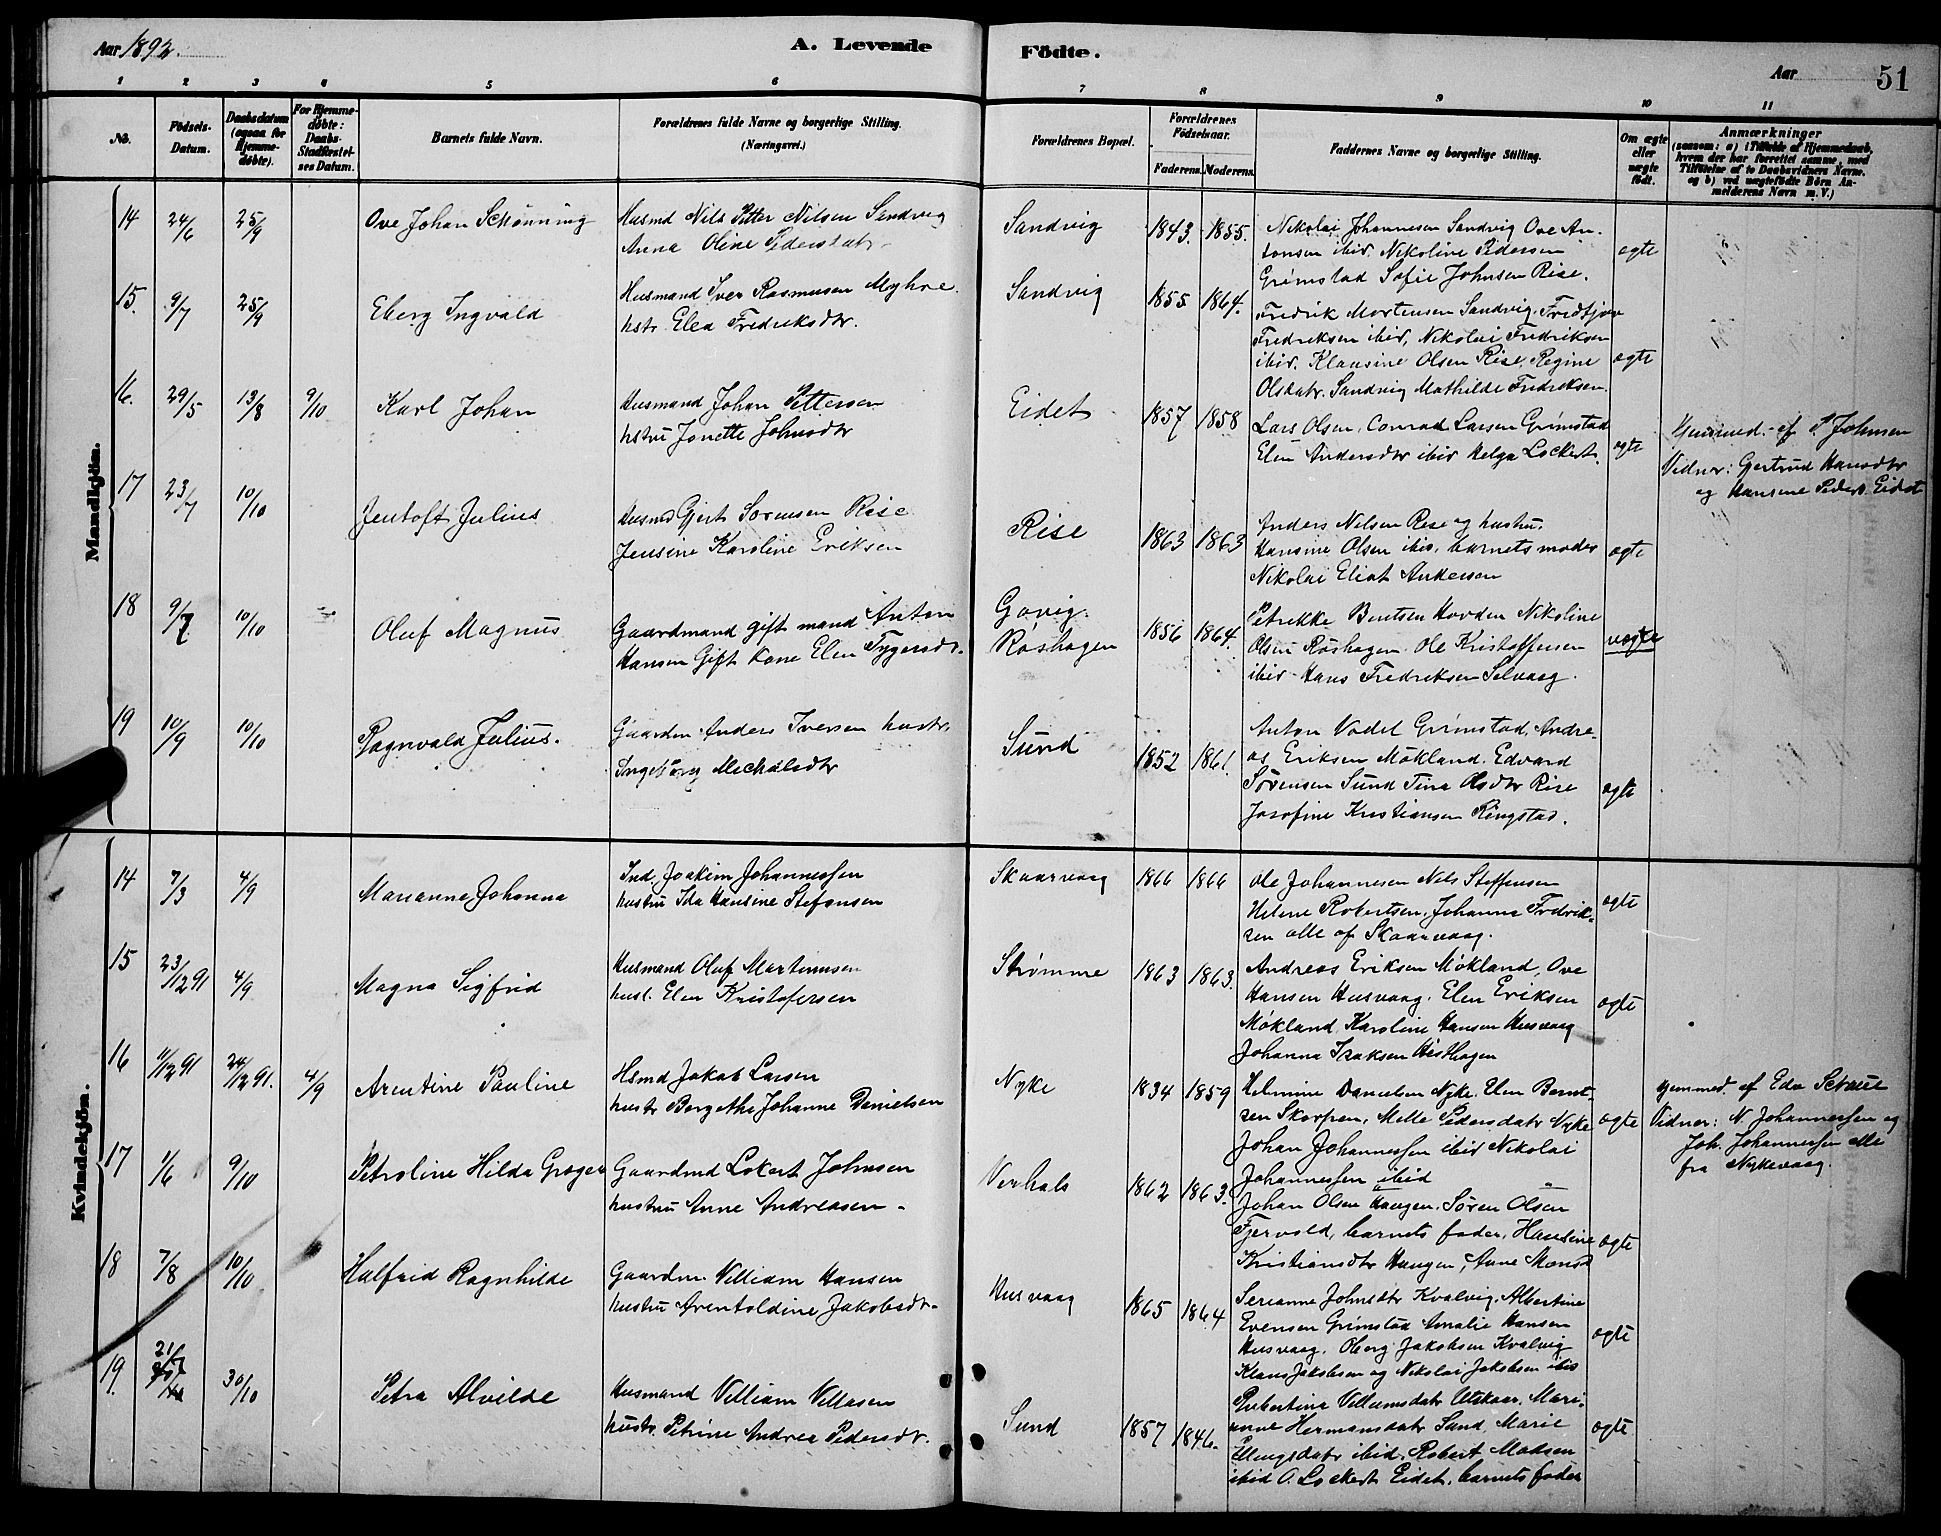 Aar 1892.
A. Levende Födte.
Aar
51
1 2 3 4 5 6 7 8 9 10 11
No.
Födsels-Datum.
Daabsdatum (ogsaa for Hjemme-døbte).
For Hjemme-døbte: Daabs-Stadfæstel-ses Datum.
Barnets fulde Navn.
Forældrenes fulde Navne og borgerlige Stilling. (Næringsvei.)
Forældrenes Bopæl.
Forældrenes Födselsaar.
Faderens. Moderens.
Faddernes Navne og borgerlige Stilling.
Om ægte eller uægte født.
Anmærkninger
(saasom: a) i Tilfælde af Hjemmedaab, hvem der har forrettet samme, med Tilføielse af to Daabsvidners Navne, og b) ved uægtefødte Börn Anmelderens Navn m. V.)
Mandkjön.
14 24/6 25/9 Ove Johan Schönning
Husmd Nils Petter Nilsen Sandvig
Anna Oline Pedersdatr
Sandvig 1843. 1855.
Nikolai Johannesen Sandvig Ove An-
tonsen ibid. Nikoline Pedersen
Grimstad Sofie Johnsen Rise.
ægte
15. 9/7 25/9 Eberg Ingvald
Husmand Iver Rasmusen Myhre
hstr. Elea Fredriksdtr.
Sandvig 1855 1864.
Fredrik Mortensen Sandvig, Fridtjov
Fredriksen ibid, Nikolai Fredriksen
ibid. Klausine Olsen Rise, Regine
Olsdatr. Sandvig Mathilde Fredriksen
ægte
16. 29/5 13/8 9/10 Karl Johan
Husmand Johan Pettersen
hstru Jonette Johnsdtr
Eidet 1857 1858
Lars Olsen, Conrad Larsen Grimstad
Elen Andersdtr ibid Helga Lockert.
ægte
Hjemmed. af P. Johnsen
Vidner: Gertrud Hansdtr
og Hansine Peders. Eidet
17 23/7 10/10 Jentoft Julius
Husmd Gjert Sörensen Rise
Jensine Karoline Eriksen
Rise 1863 1863
Anders Nilsen Rise og hustru
Hansine Olsen ibid, barnets moder
Nikolai Eliat Andersen
ægte
18 9/7 10/10 Oluf Magnus
Gaardmand gift mand Anton
Hansen Gift Kone Elen Tygersdt.
Gavig.
Röshagen 1856 1864.
Petrikke Bentsen Hovden Nikoline
Olsen Röshagen. Ole Kristoffersen
ibid Hans Fredriksen Selvaag.
uægte
19 10/9 10/10 Ragnvald Julius.
Gaardm. Anders Iversen hustr.
Ingeborg Michalsdtr
Sund 1852 1861.
Anton Vadet Grimstad, Andre-
as Eriksen Mökland. Edvard
Sörensen Sund Tina Olsdtr Rise
Josefine Kristiansen Ringstad.
ægte
Kvindekjön.
14 7/3 4/9 Marianne Johanna
Ind. Joakim Johannessen
hustru Ida Hansine Stefansen
Skaarvaag 1866 1866
Ole Johannesen Nels Steffensen
Helene Robertsen, Johanna Fredrik-
sen alle af Skaarvaag.
ægte
15 23/12 91 4/9 Magna Sigfrid
Husmand Oluf Martinusen
hust. Elen Kristofersen
Strömme 1863 1863.
Andreas Eriksen Mökland, Ove
Hansen Husvaag. Elen Eriksen
Mökland Karoline Hansen Husvaag
Johanna Isaksen Hesthagen
ægte
16 11/12 91 24/12 91. 4/9 Arentine Pauline
Hsmd Jakob Larsen
hustr Bergethe Johanne Danielsen
Nyke 1834 1859
Helmine Danielsen Nyke. Elen Bernt-
sen Skorpen, Mette Pedersdatr Nyke
Johan Johannessen ibid Nikolai
Johannessen ibid
ægte
Hjemmed. af Edv
Vidner: N. Johannessen og
Joh. Johannessen alle
fra Nykevaag.
17 1/6 9/10 Petroline Hilda Greger
Gaardmd Lokert Johnsen
hustru Anne Andreasen
Verhals 1862 1863.
Johan Olsen Haugen. Sören Olsen
Fjervold, barnets fader, Hansine
Kristiansdtr Haugen, Anne Monsd
ægte
18 7/8 10/10 Halfrid Ragnhilde
Gaardm. Villiam Hansen
hustru Arentoldine Jakobsdt.
Husvaag 1865 1864
Serianne Johnsdtr Kvalvig. Albertine
Evensen Grimstad Amalie Hansen
Husvaag. Oberg Jakobsen Kvalvig
Klaus Jakobsen og Nikolai Jakobsen ibid
ægte
19. 21/7 30/10 Petra Alvilde
Husmand Villiam Villasen
hustr. Petrine Andrea Pedersdt.
Sund 1857 1846.
Villumsdatr Utskaar, Mari-
anne Hermansdatr Sund, Marie
Ellingsdatr ibid, Robert Madsen
ibid O. Lockert Eidet, barnets fader
ægte